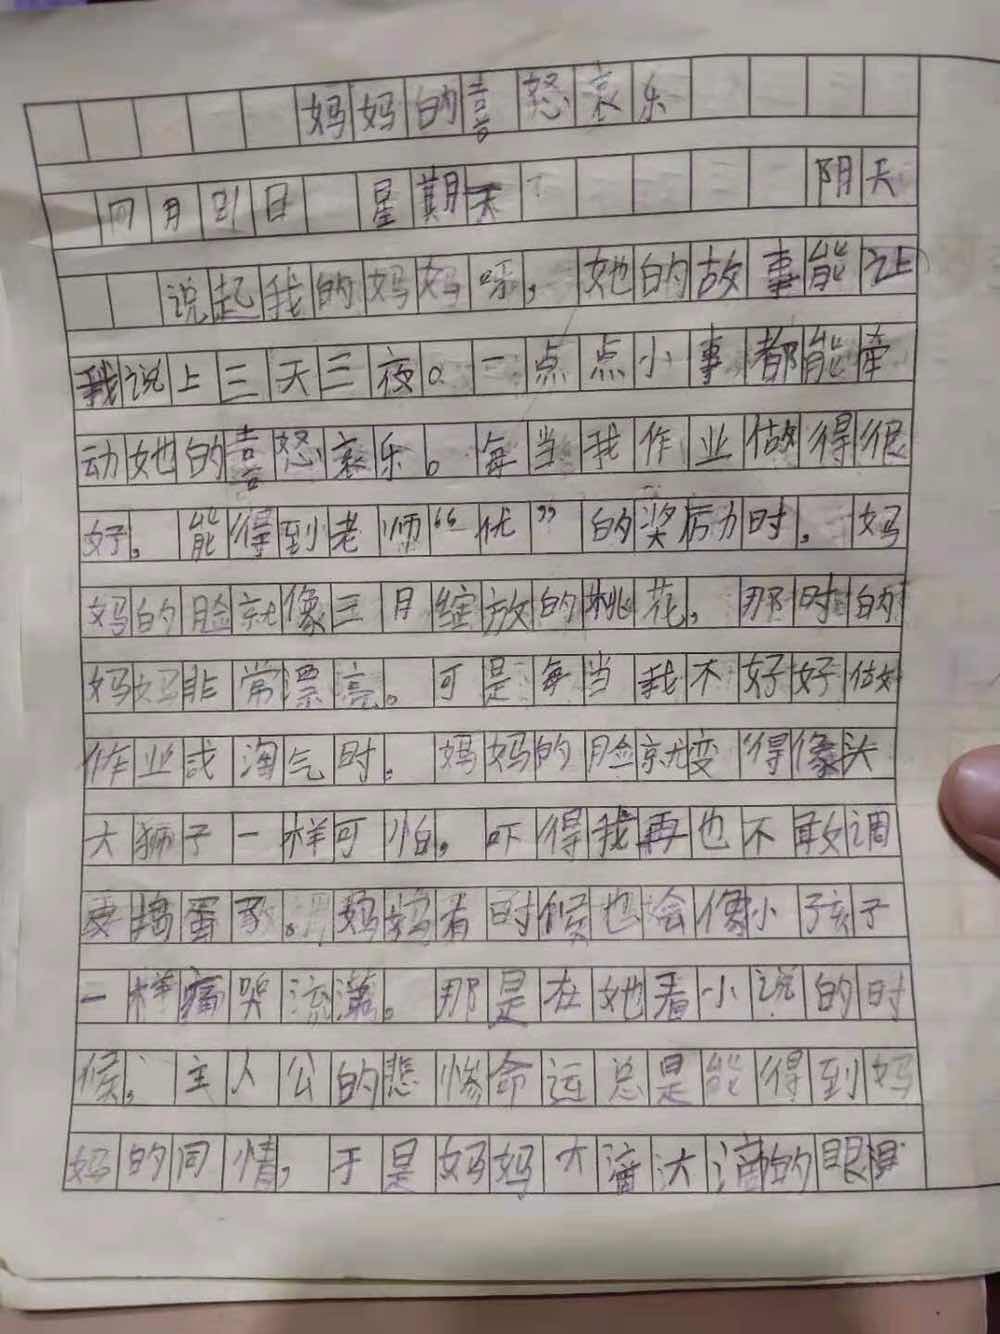 妈妈的喜怒哀乐
四月21日 星期天 阴天
说起我的妈妈呀，她的故事能让
我说上三天三夜。一点点小事都能牵
动她的喜怒哀乐。每当我作业做得很
好，能得到老师“优”的奖厉力时，妈
妈的脸就像三月绽放的桃花，那时的
妈妈非常漂亮。可是每当我不好好做
作业或淘气时，妈妈的脸就变得像头
大狮子一样可怕，吓得我再也不敢调
皮捣蛋了。妈妈有时候也会像小孩子
一样痛哭流涕。那是在她看小说的时
候，主人公的悲惨命运总是能得到妈
妈的同情，于是妈妈大滴大滴的眼泪